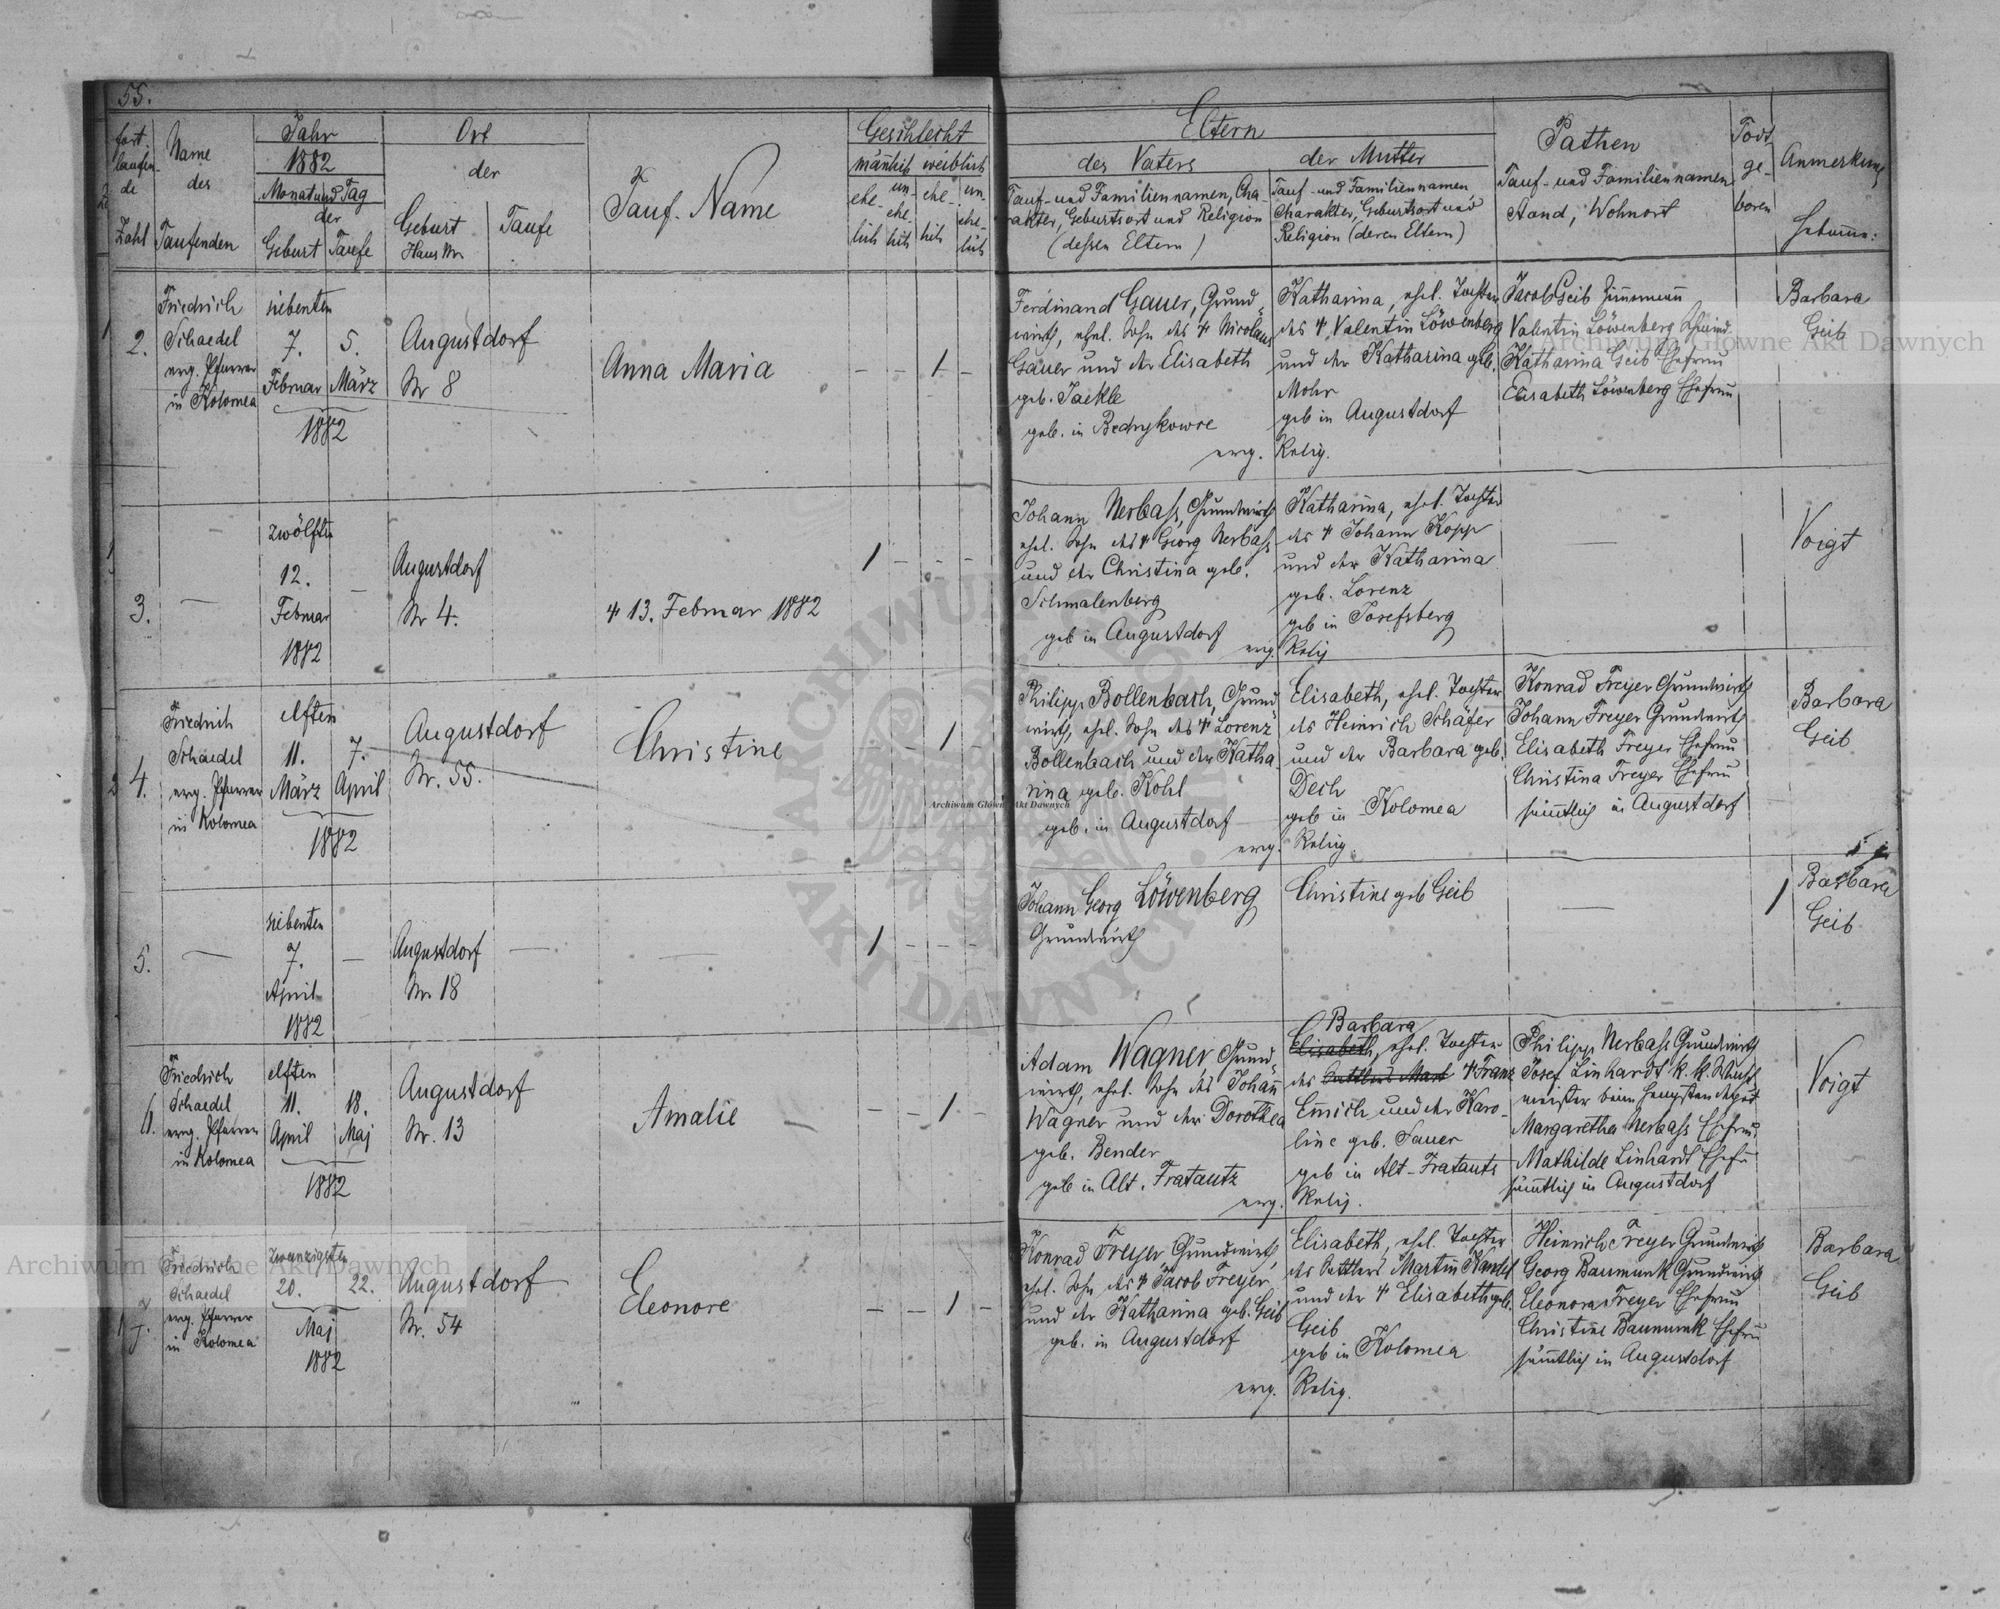 55.
fort
laufen-
de
Zahl
Name
des
Taufenden
Jahr
1882
Monat und Tag
der
Geburt
Taufe
Ort
der
Geburt
Haus Nr.
Taufe
Tauf-Name
Geschlecht
mänlich
weiblich
ehe-
lich
un-
ehe-
lich
ehe-
lich
un-
ehe-
lich
Eltern
des Vaters
Tauf- und Familiennamen, Cha-
rakter, Geburtsort und Religion
(dessen Eltern)
der Mutter
Tauf- und Familiennamen,
Charakter, Geburtsort und
Religion (deren Eltern)
Pathen
Tauf- und Familiennamen
Stand, Wohnort
Todt
ge-
boren
Anmerkung
Hebame:
2.
Friedrich
Schaedel
evg. Pfarrer
in Kolomea
siebenten
7.
Februar
5.
März
1882
Augustdorf
Nr 8
Anna Maria
– – 1 –
Ferdinand Gauer, Grund
wirth, ehel. Sohn des † Nicolaus
Gauer und der Elisabeth
geb. Jaekle
geb. in Bedrykowce
evg.
Katharina, ehel. Tochter
des † Valentin Löwenberg
und der Katharina geb.
Mohr
geb in Augustdorf
Relig.
Jacob Geib Zimmermann
Valentin Löwenberg
Katharina Geib Ehefrau
Elisabeth Löwenberg Ehefrau
Barbara
Geib
3.
–
zwölften
12.
Februar
1882
–
Augustdorf
Nr 4.
† 13. Februar 1882
1 – – –
Johann Nerbass, Grundwirth
ehel. Sohn des † Georg Nerbass
und der Christina geb.
Schmalenberg
geb in Augustdorf
evg.
Katharina, ehel. Tochter
des † Johann Kopp
und der Katharina
geb. Lorenz
geb in Josefsberg
Relig
–
Voigt
4.
Friedrich
Schaedel
evg. Pfarrer
in Kolomea
elften
11.
März
7.
April
1882
Augustdorf
Nr. 55.
Christine
– – 1 –
Philipp Bollenbach, Grund
wirth, ehel. Sohn des † Lorenz
Bollenbach und der Katha-
rina geb. Kohl
geb. in Augustdorf
evg.
Elisabeth, ehel. Tochter
des Heinrich Schäfer
und der Barbara geb.
Dech
geb in Kolomea
Relig.
Konrad Freyer Grundwirth
Johann Freyer Grundwirth
Elisabeth Freyer Ehefrau
Christina Freyer Ehefrau
sämtlich in Augustdorf
Barbara
Geib
5.
–
siebenten
7.
April
1882
–
Augustdorf
Nr 18
–
–
1 – – –
Johann Georg Löwenberg
Grundwirth
Christine geb Geib
–
1
Barbara
Geib
6.
Friedrich
Schaedel
evg. Pfarrer
in Kolomea
elften
11.
April
18.
Maj
1882
Augustdorf
Nr. 13
Amalie
– – 1 –
Adam Wagner Grund
wirth, ehel. Sohn des Johann
Wagner und der Dorothea
geb. Bender
geb in Alt-Fratautz
evg.
Barbara
Elisabeth, ehel. Tochter
des Sattlers Mart † Franz
Emich und der Karo-
line geb. Sauer
geb in Alt-Fratautz
Relig.
Philipp Nerbass Grundwirth
Josef Linhardt k. k.
meister beim
Margaretha Nerbass Ehefrau
Mathilde Linhardt Ehefr
sämtlich in Augustdorf
Voigt
7.
Friedrich
Schaedel
evg. Pfarrer
in Kolomea
Zwanzigsten
20.
22.
Maj
1882
Augustdorf
Nr. 54
Eleonore
– – 1 –
Konrad Freyer, Grundwirth,
ehel. Sohn des † Jacob Freyer
und der Katharina geb. Geib
geb. in Augustdorf
evg.
Elisabeth, ehel. Tochter
des Sattlers Martin Kandel
und der † Elisabeth geb.
Geib
geb in Kolomea
Relig.
Heinrich Freyer Grundwirth
Georg Baumunk Grundwirth
Eleonora Freyer Ehefrau
Christine Baumunk Ehefrau
sämtlich in Augustdorf
Barbara
Geib
Archiwum Główne Akt Dawnych
Archiwum Główne Akt Dawnych
Archiwum Główne Akt Dawnych
ARCHIWUM GŁÓWNE AKT DAWNYCH